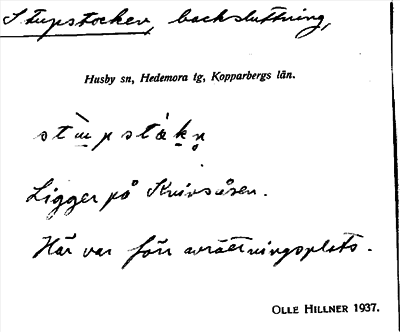 Stupstocken, backsluttning,
Husby sn, Hedemora tg, Kopparbergs län.
Ligger på Knivsåsen.
Här var förr avrättningsplats.
OLLE HILLNER 1937.